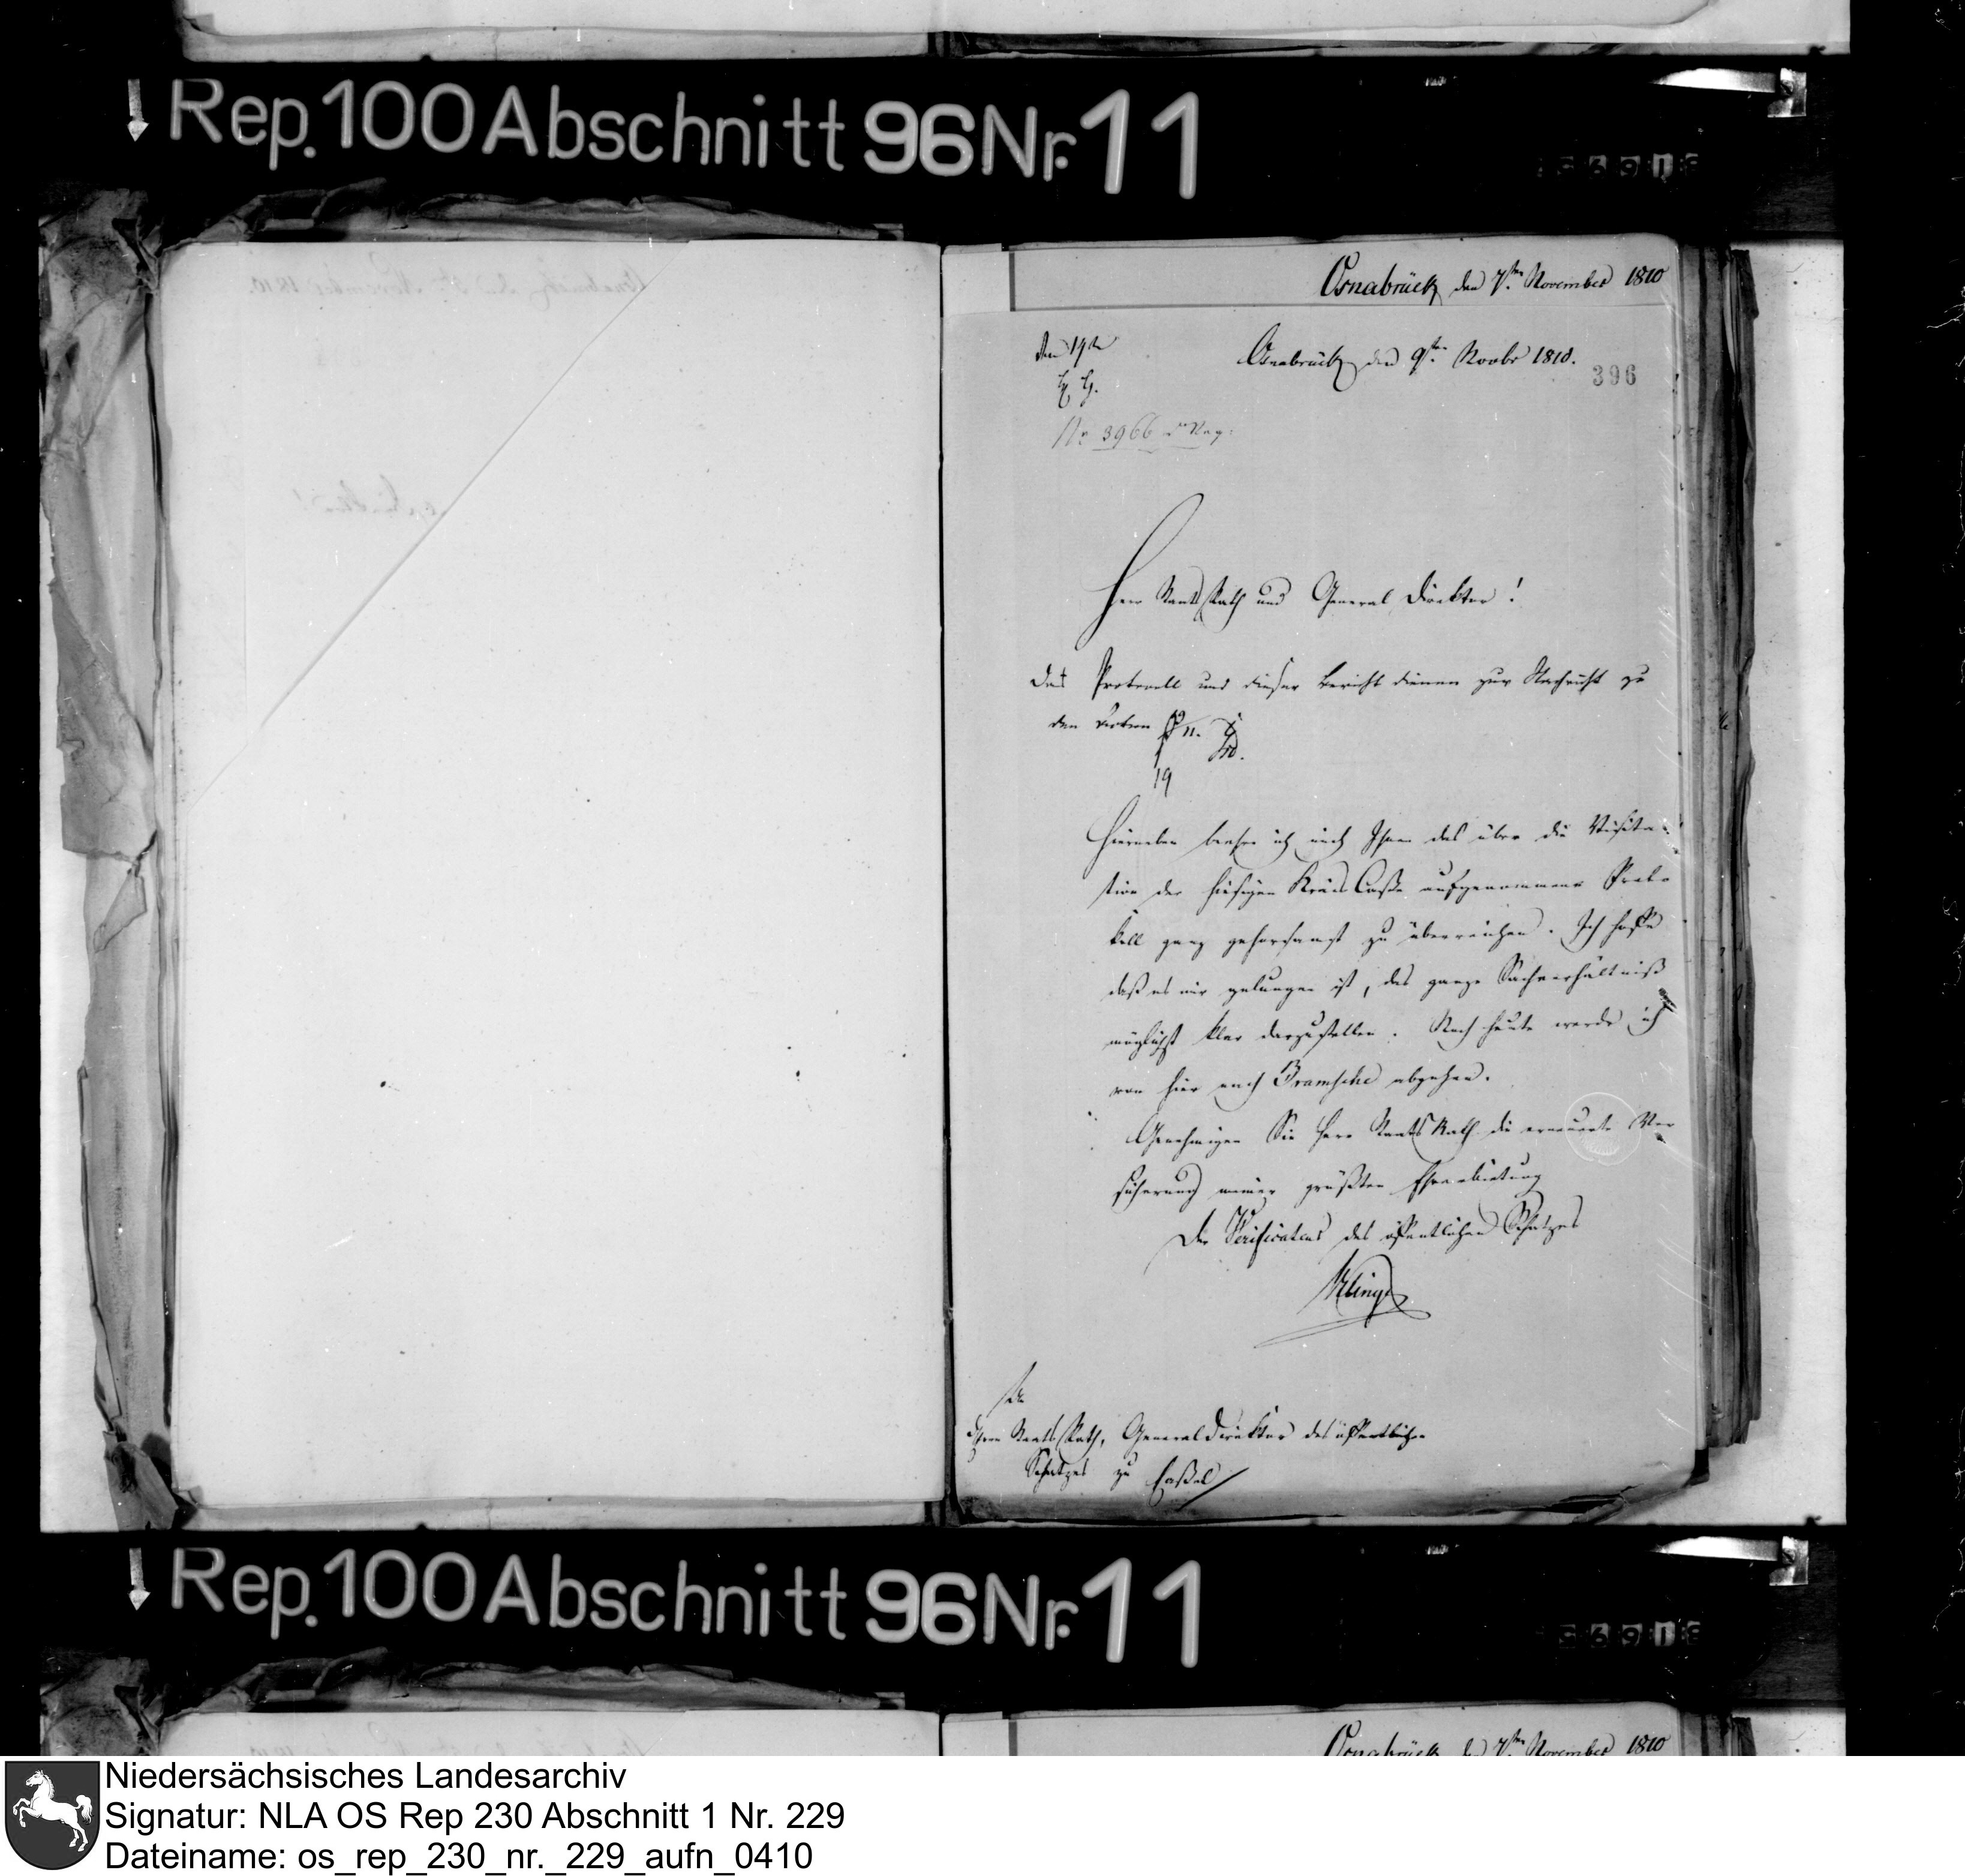 Rep. 100 Abschnitt 96 Nr. 11
Osnabrück den 7ten November 1810
den 19ten
Osnabrück den 9ten Novbr 1810.
396
Nr 3966 d. Reg.
Herr StaatsRath und General Direktor!
Das Protocoll und dieser Bericht dienen zur Nachricht zu
den Acten
19
Hierneben beehre ich mich Ihnen das über die Visita-
tion der hiesigen Kreis Casse aufgenommene Proto-
koll ganz gehorsamst zu überreichen. Ich hoffe
daß es mir gelungen ist, das ganze Sachverhältniß
möglichst klar darzustellen. Noch heute werde ich
von hier nach Bramsche abgehen.
Genehmigen Sie Herr StaatsRath die erneuerte Ver-
sicherung meiner größten Ehrerbietung
Der Verificateur des öffentlichen Schatzes
An
Herrn StaatsRath, General Direktor des öffentlichen
Schatzes zu Cassel
Rep. 100 Abschnitt 96 Nr. 11
Osnabrück den 7ten November 1810
Niedersächsisches Landesarchiv
Signatur: NLA OS Rep 230 Abschnitt 1 Nr. 229
Dateiname: os_rep_230_nr._229_aufn_0410